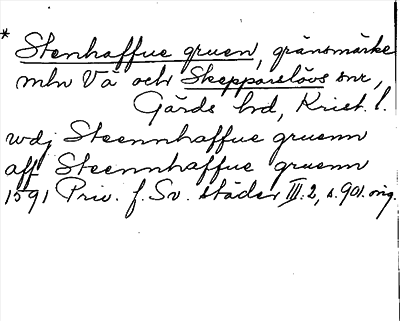 * Stenhaffue gruen, gränsmärke
mln Vä och Skepparslövs snr,
Gärds hrd, Krist. l.
wdj Steennhaffue gruenn
aff Steennhaffue gruenn
1591 Priv. f. Sv. städer III.2, s.901. orig.